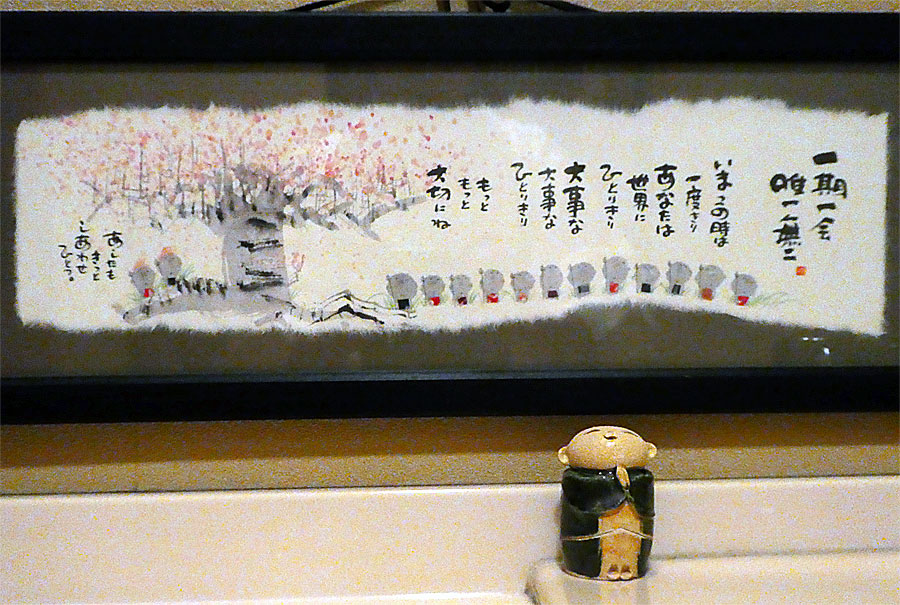 一期一会
唯一無二
いまこの時は
一度きり
あなたは
世界に
ひとりきり
大事な
大事な
ひとりきり
もっと
もっと
大切にね
あしたも
きっと
しあわせ
ひとつ。